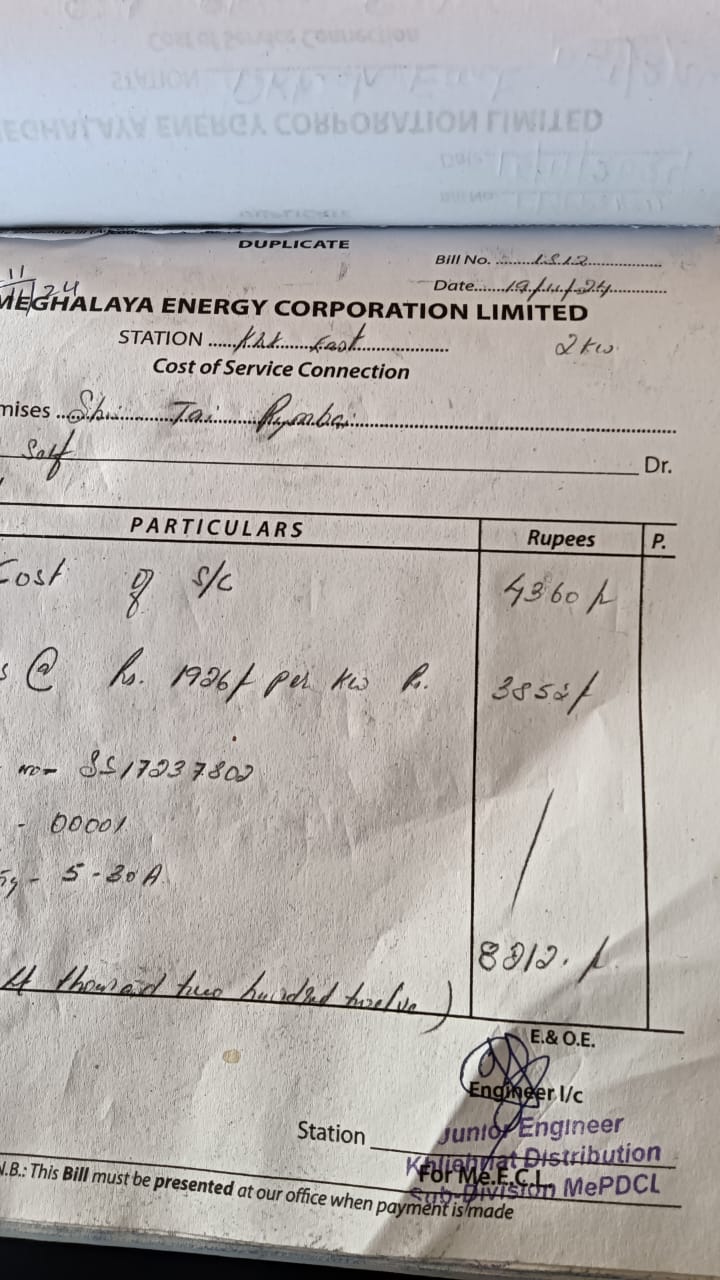 DUPLICATE
Bill No. 1812
Date 19/11/24
11
24
MEGHALAYA ENERGY CORPORATION LIMITED
STATION Khl East
2 kw
Cost of Service Connection
mises Shri Tai Rymbai
Self Dr.
PARTICULARS Rupees P.
Cost of S/C 4360/-
s @ Rs. 1926/- per kw R. 3852/-
no- SS17237802
- 00001
5-30A
8212./-
t thousand two hundred twelve)
E.& O.E.
Engineer I/c
Station
Junior Engineer
Khliehriat Distribution
For Me.E.C.L.
Sub-Division MePDCL
N.B.: This Bill must be presented at our office when payment is made